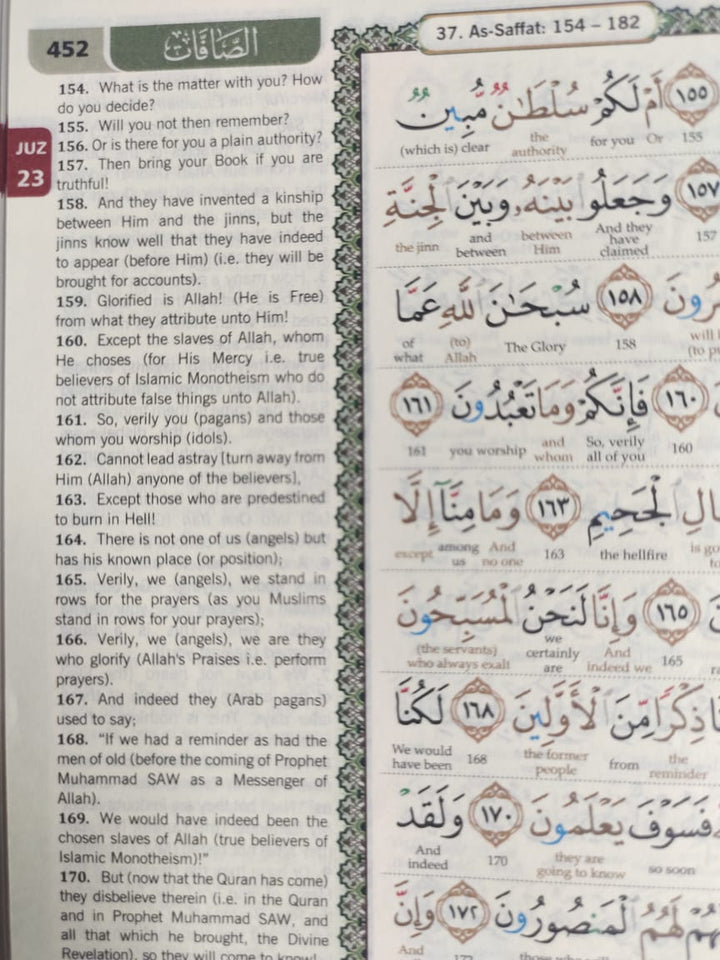 452
الصَّافَّات
37. As-Saffat: 154 – 182
JUZ
23
154. What is the matter with you? How
do you decide?
155. Will you not then remember?
156. Or is there for you a plain authority?
157. Then bring your Book if you are
truthful!
158. And they have invented a kinship
between Him and the jinns, but the
jinns know well that they have indeed
to appear (before Him) (i.e. they will be
brought for accounts).
159. Glorified is Allah! (He is Free)
from what they attribute unto Him!
160. Except the slaves of Allah, whom
He choses (for His Mercy i.e. true
believers of Islamic Monotheism who do
not attribute false things unto Allah).
161. So, verily you (pagans) and those
whom you worship (idols).
162. Cannot lead astray [turn away from
Him (Allah) anyone of the believers],
163. Except those who are predestined
to burn in Hell!
164. There is not one of us (angels) but
has his known place (or position);
165. Verily, we (angels), we stand in
rows for the prayers (as you Muslims
stand in rows for your prayers);
166. Verily, we (angels), we are they
who glorify (Allah's Praises i.e. perform
prayers).
167. And indeed they (Arab pagans)
used to say;
168. “If we had a reminder as had the
men of old (before the coming of Prophet
Muhammad SAW as a Messenger of
Allah).
169. We would have indeed been the
chosen slaves of Allah (true believers of
Islamic Monotheism)!”
170. But (now that the Quran has come)
they disbelieve therein (i.e. in the Quran
and in Prophet Muhammad SAW, and
all that which he brought, the Divine
Revelation), so they will come to know!
١٥٥ أَمْ لَكُمْ سُلْطَـٰنٌ مُّبِينٌ
155 Or for you the authority (which is) clear
١٥٧ وَجَعَلُوا۟ بَيْنَهُۥ وَبَيْنَ ٱلْجِنَّةِ
157 And they have claimed between Him and between the jinn
١٥٨ سُبْحَـٰنَ ٱللَّهِ عَمَّا
158 The Glory (to) Allah of what
١٦٠ فَإِنَّكُمْ وَمَا تَعْبُدُونَ ١٦١
160 So, verily all of you and whom you worship 161
ٱلْجَحِيمِ ١٦٣ وَمَا مِنَّآ إِلَّا
the hellfire 163 And no one among us except
١٦٥ وَإِنَّا لَنَحْنُ ٱلْمُسَبِّحُونَ
165 And indeed we we certainly are (the servants) who always exalt
ذِكْرًا مِّنَ ٱلْأَوَّلِينَ ١٦٨ لَكُنَّا
the reminder from the former people 168 We would have been
فَسَوْفَ يَعْلَمُونَ ١٧٠ وَلَقَدْ
so soon they are going to know 170 And indeed
لَهُمُ ٱلْمَنصُورُونَ ١٧٢ وَإِنَّ
172 And